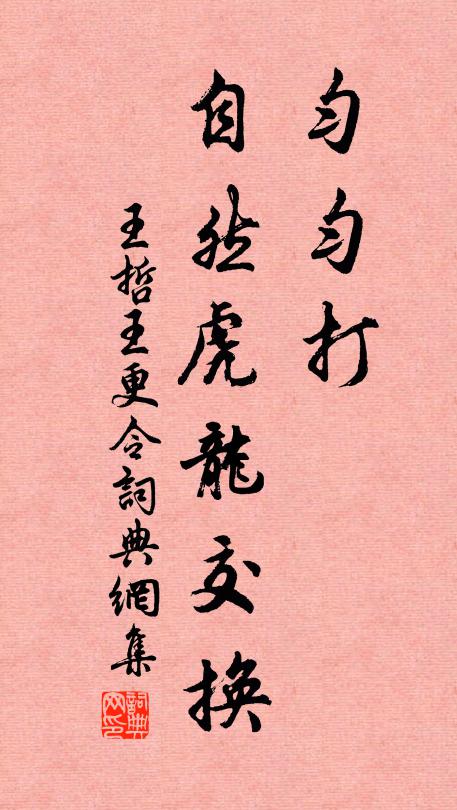 匀匀打
自然虎龍交換
王哲王更令詞典網集
詞典网印